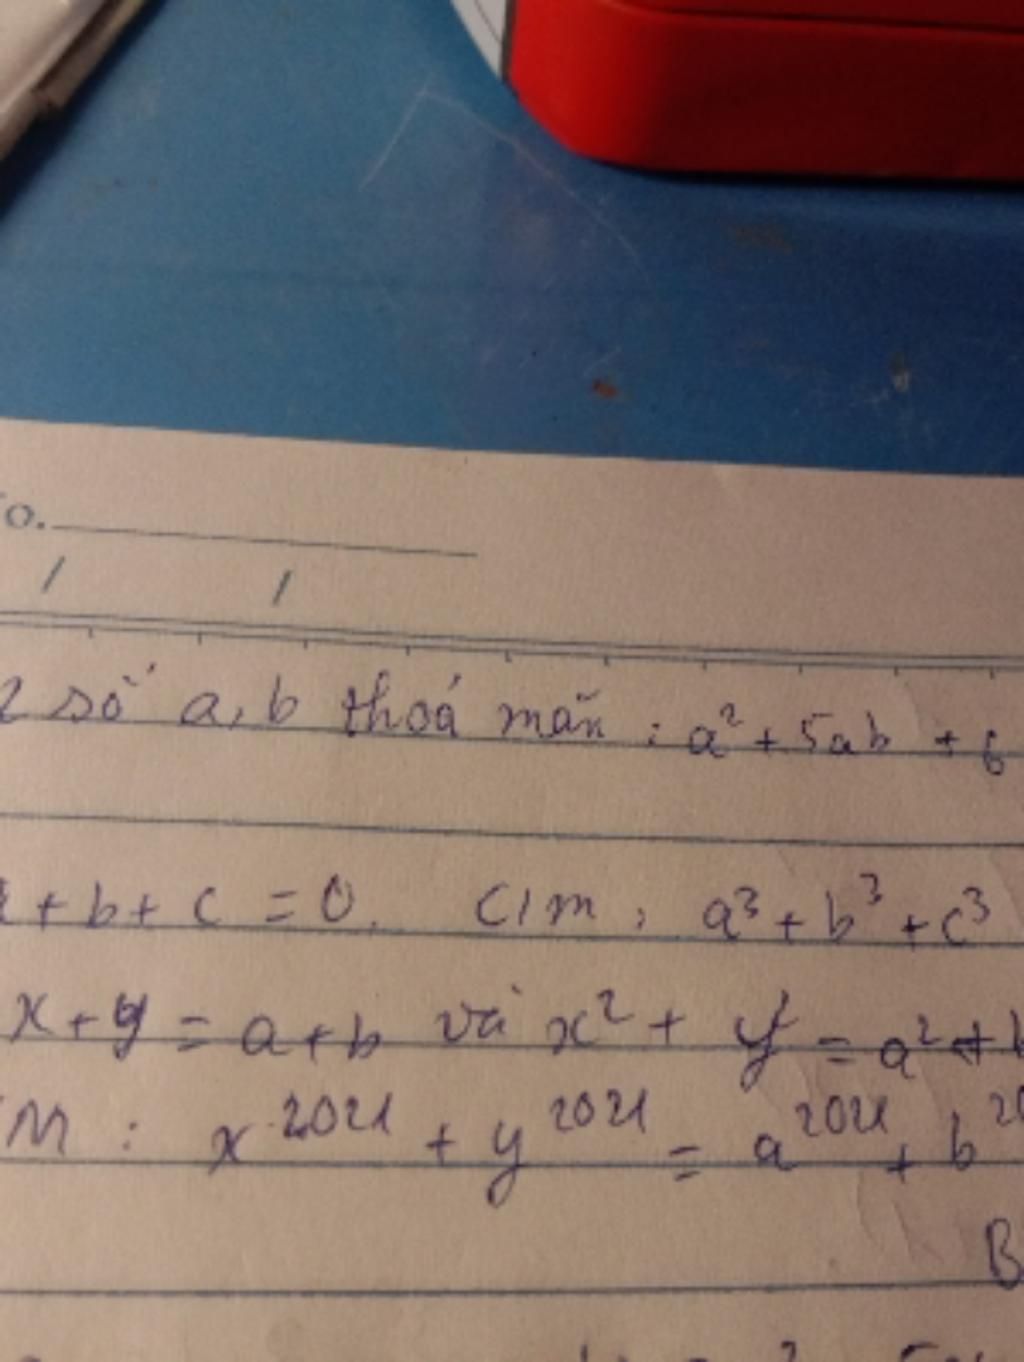 o.
/ /
2 số a, b thoả mãn : a² + 5ab + 6
a + b + c = 0. C/m : a³ + b³ + c³
x + y = a + b và x² + y² = a² + b
M : x²⁰²¹ + y²⁰²¹ = a²⁰²¹ + b²⁰
B